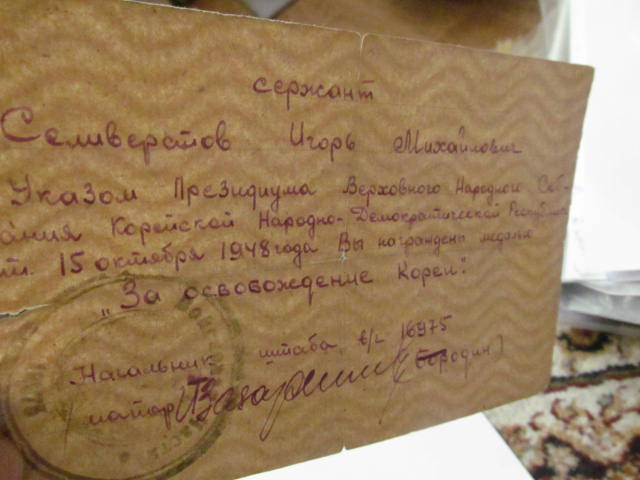 сержант
Селиверстов Игорь Михайлович
Указом Президиума Верховного Народного Соб-
рания Корейской Народно-Демократической Республики
от. 15 октября 1948 года Вы награждены медалью
„За освобождение Кореи".
Начальник штаба в/ч 16975
майор (Бородин)